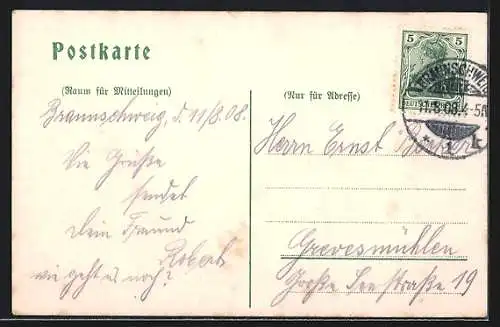 Postkarte
(Raum für Mitteilungen)
Braunschweig, d. 11/8.08.
Die Grüße
sendet
Dein Freund
Robert
wie geht es noch?
(Nur für Adresse)
5 5
DEUTSCHES
BRAUNSCHWEIG
11.8.08.4-5N
* 1 k
Herrn Ernst
Grevesmühlen
Große Seestraße 19